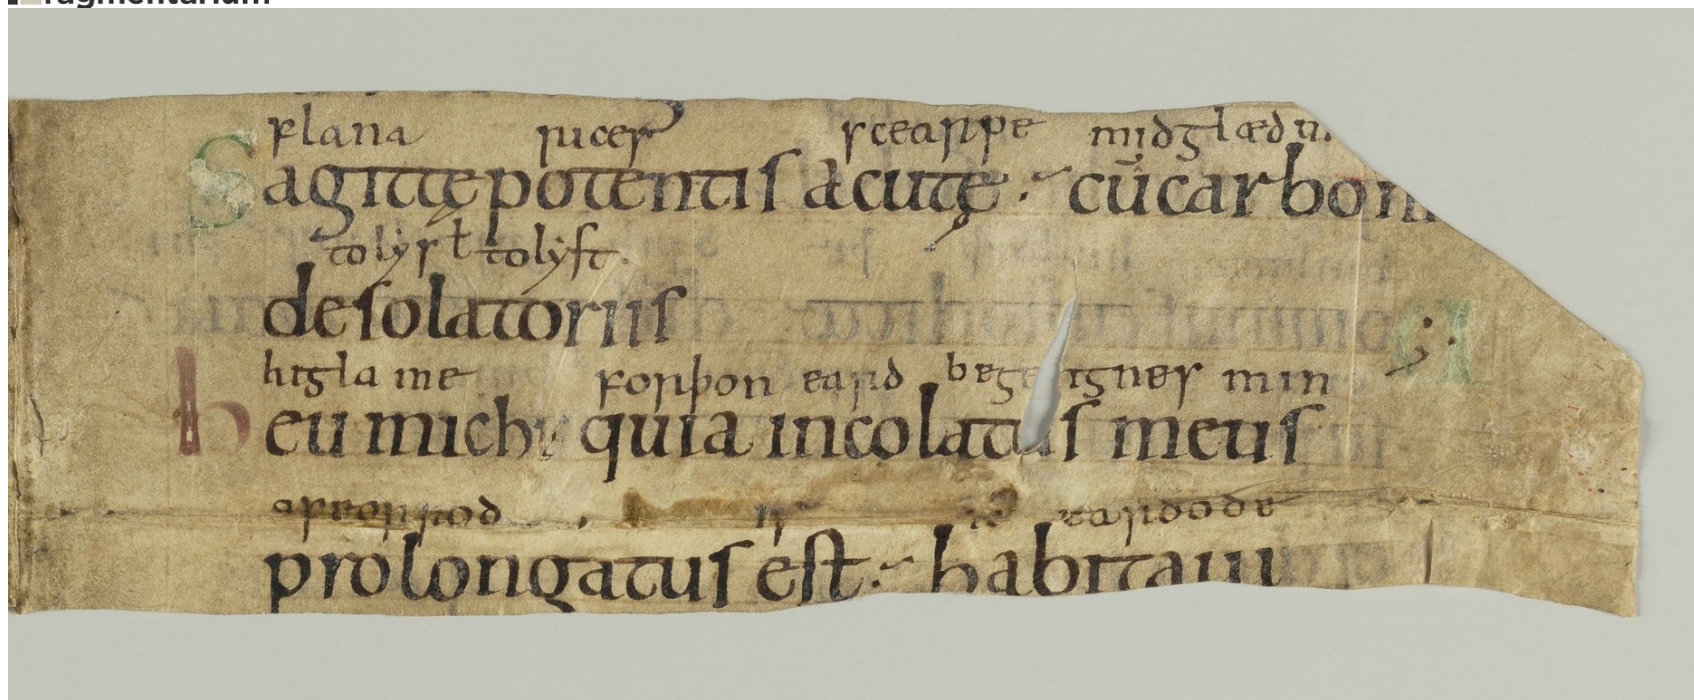 ragmentarium
flana rices scearpe mid glædu
Sagittę potentis acutę. cū carbon
tolys ł tolyst.
desolatoriis
hig la me forþon eard begengnes min
heu michi quia incolatus meus
afeorrod is ic eardode
prolongatus est. habitaui